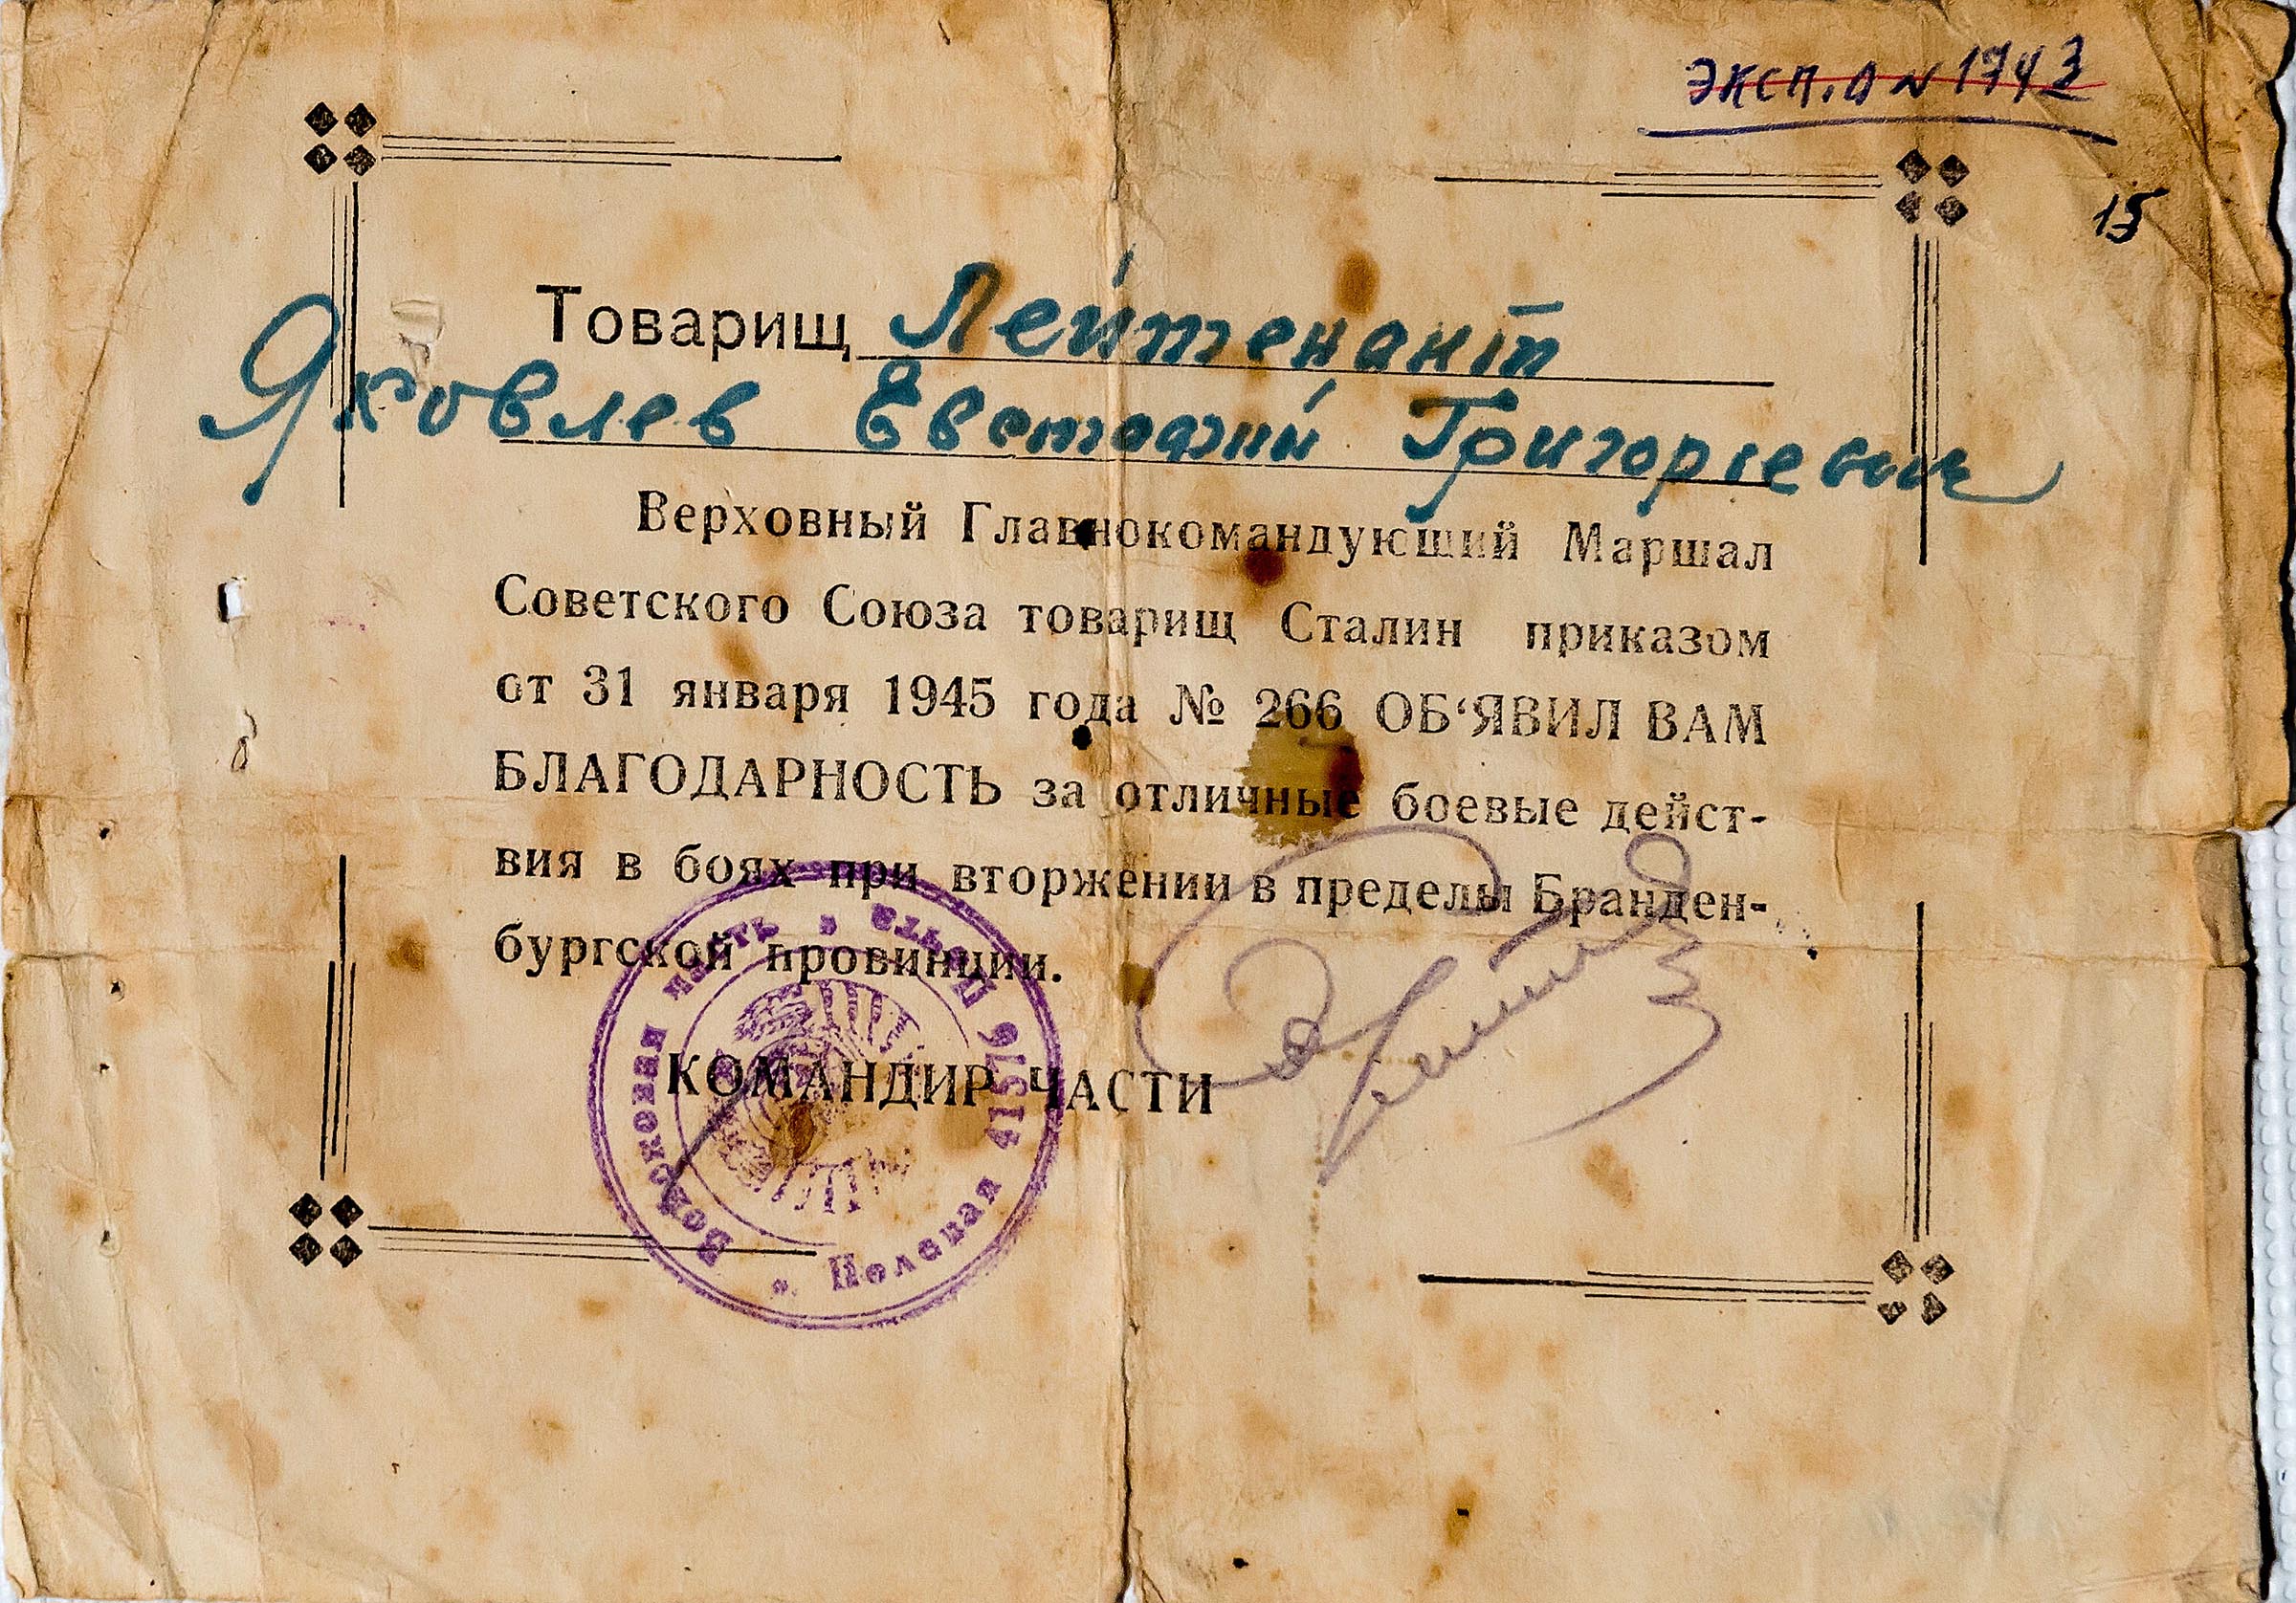 ЭКСП. О № 1743
15
Товарищ Лейтенант
Яковлев Евстафий Григорьевич
Верховный Главнокомандующий Маршал
Советского Союза товарищ Сталин приказом
от 31 января 1945 года № 266 ОБ‘ЯВИЛ ВАМ
БЛАГОДАРНОСТЬ за отличные боевые дейст-
вия в боях при вторжении в пределы Бранден-
бургской провинции.
КОМАНДИР ЧАСТИ
Войсковая часть
Полевая почта